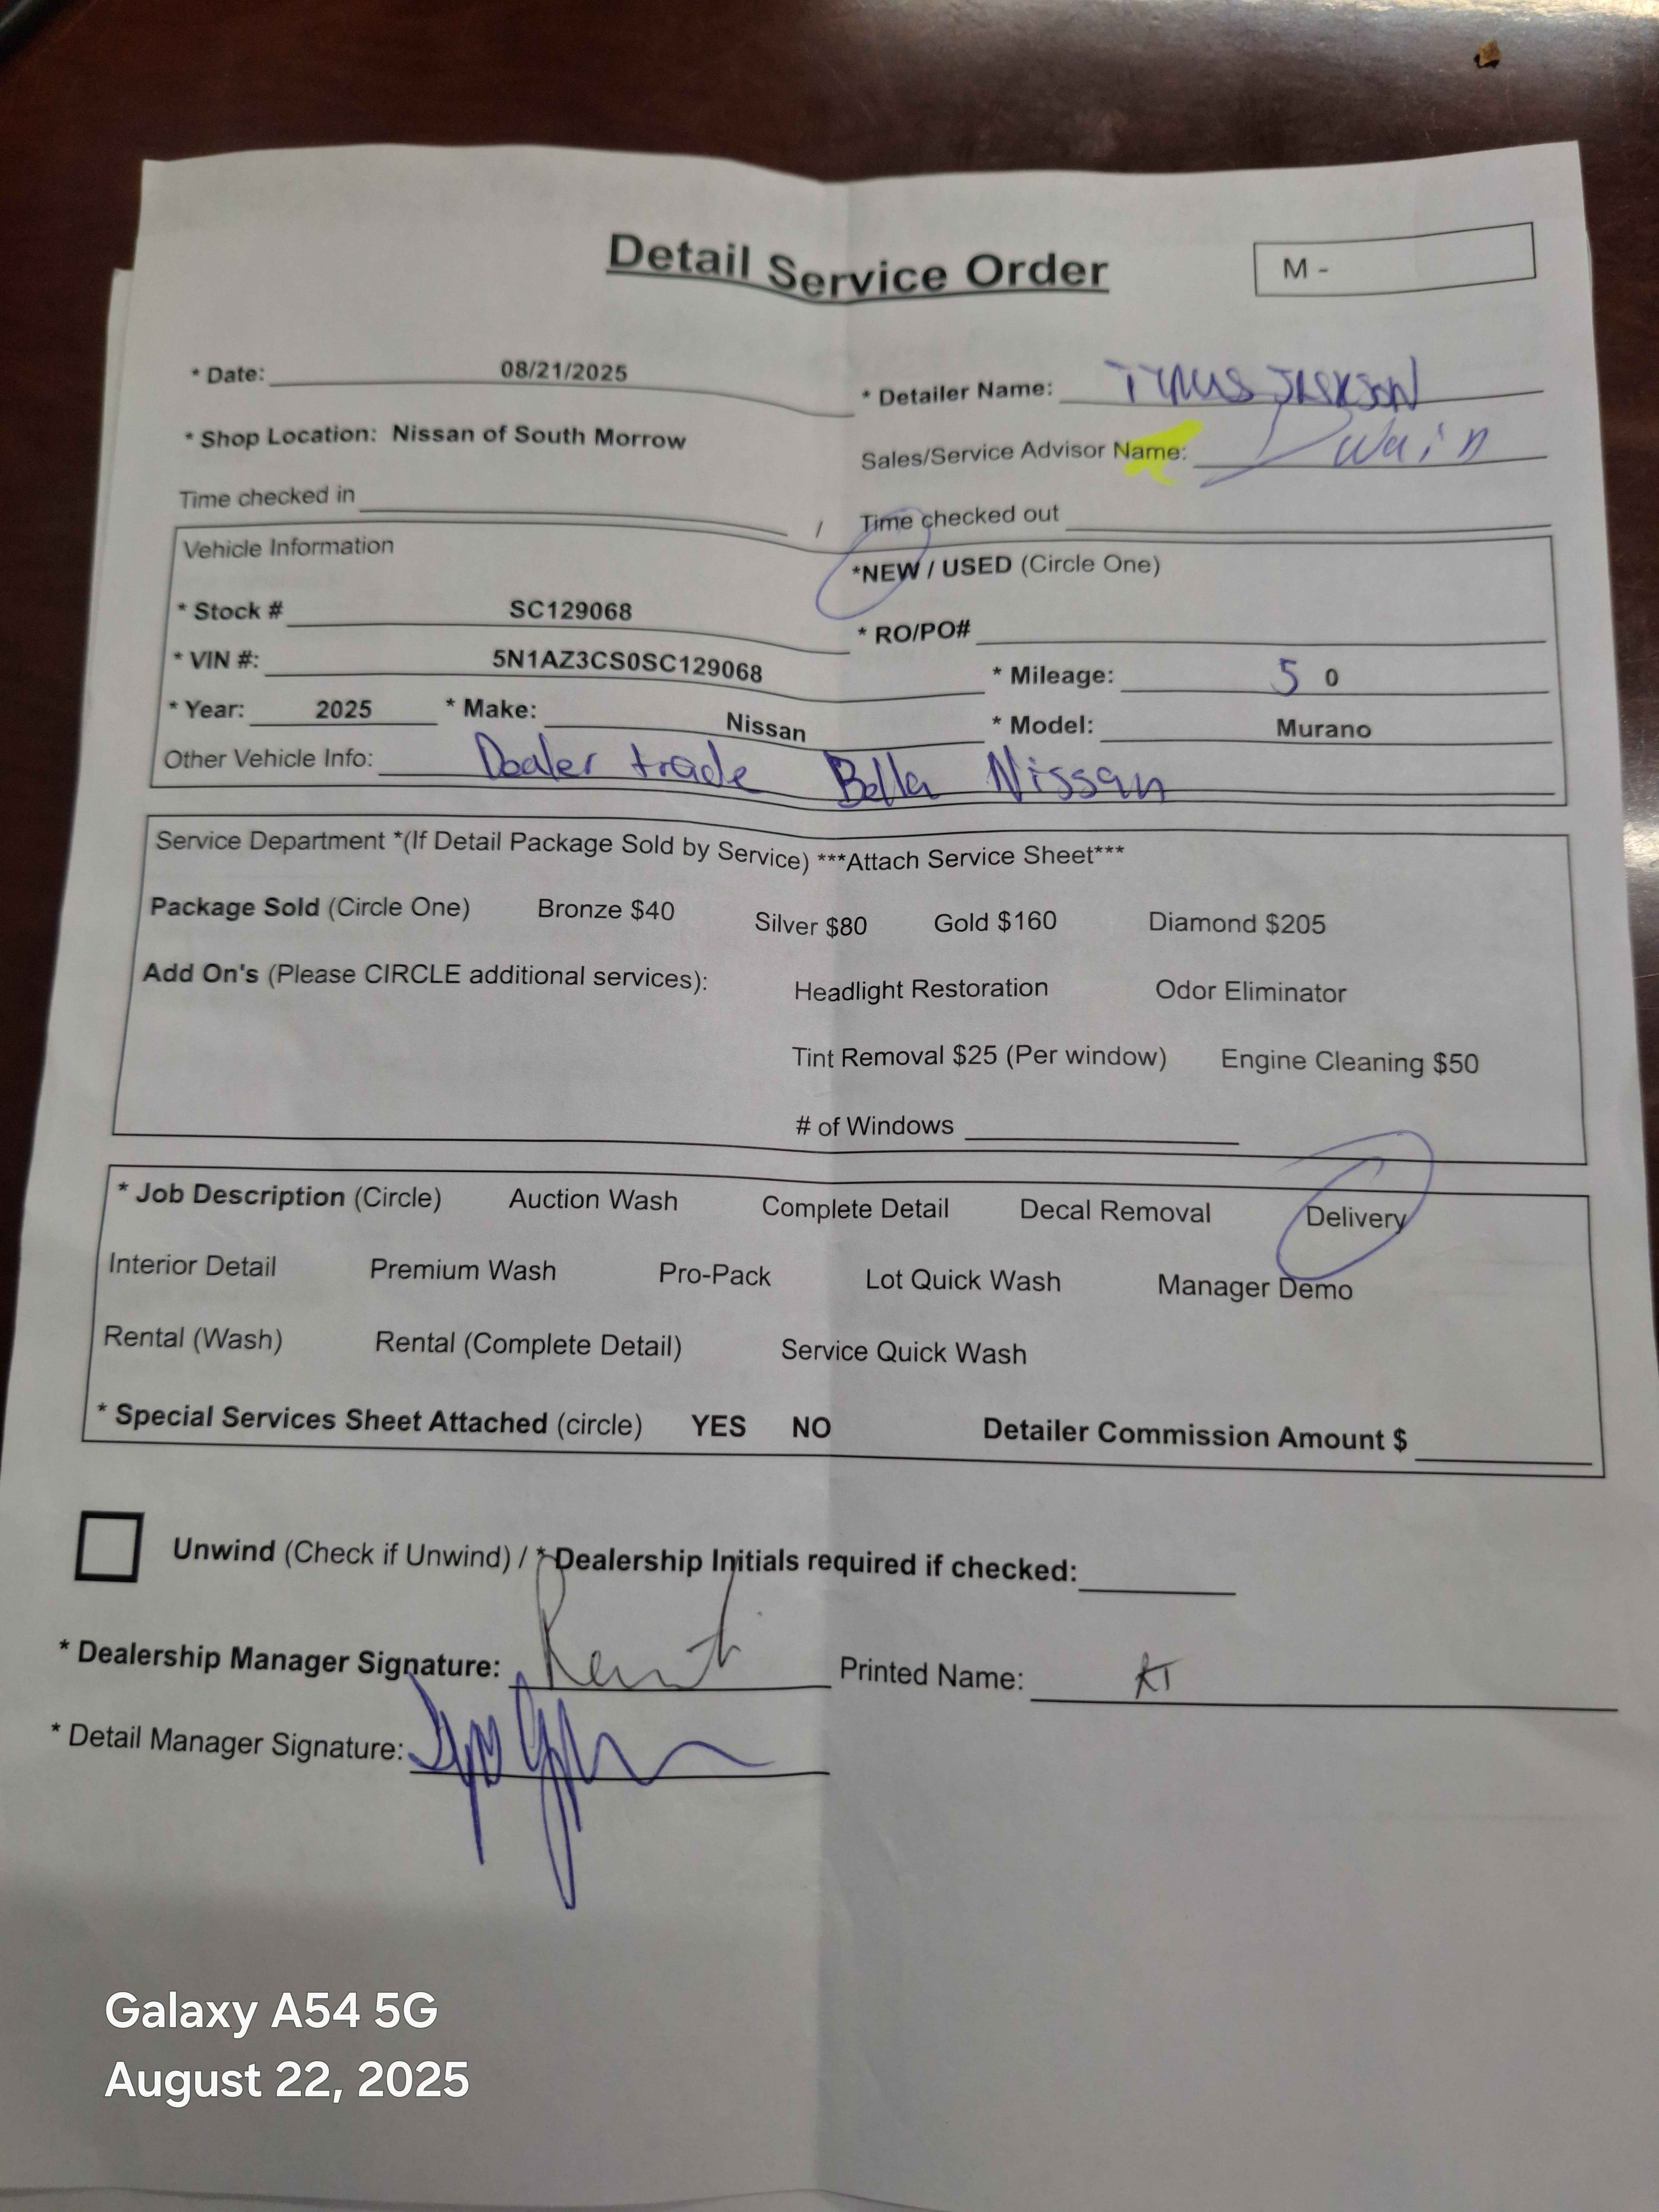 Detail Service Order
M -
* Date: 08/21/2025
* Detailer Name: TYRUS JACKSON
* Shop Location: Nissan of South Morrow
Sales/Service Advisor Name: Dwain
Time checked in / Time checked out
Vehicle Information
*NEW / USED (Circle One)
* Stock # SC129068
* RO/PO#
* VIN #: 5N1AZ3CS0SC129068
* Mileage: 5 0
* Year: 2025 * Make: Nissan * Model: Murano
Other Vehicle Info: Dealer trade Bella Nissan
Service Department *(If Detail Package Sold by Service) ***Attach Service Sheet***
Package Sold (Circle One) Bronze $40 Silver $80 Gold $160 Diamond $205
Add On's (Please CIRCLE additional services): Headlight Restoration Odor Eliminator
Tint Removal $25 (Per window) Engine Cleaning $50
# of Windows
* Job Description (Circle) Auction Wash Complete Detail Decal Removal Delivery
Interior Detail Premium Wash Pro-Pack Lot Quick Wash Manager Demo
Rental (Wash) Rental (Complete Detail) Service Quick Wash
* Special Services Sheet Attached (circle) YES NO Detailer Commission Amount $
Unwind (Check if Unwind) / * Dealership Initials required if checked:
* Dealership Manager Signature: Printed Name: KT
* Detail Manager Signature:
Galaxy A54 5G
August 22, 2025